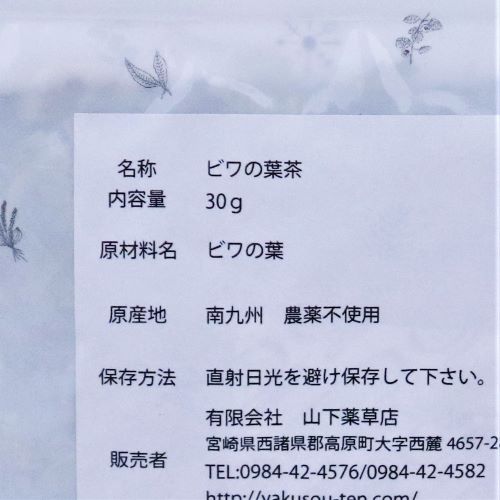 名称 ビワの葉茶
内容量 30g
原材料名 ビワの葉
原産地 南九州 農薬不使用
保存方法 直射日光を避け保存して下さい。
有限会社 山下薬草店
宮崎県西諸県郡高原町大字西麓 4657-2
販売者
TEL:0984-42-4576/0984-42-4582
http://yakusou-ten.com/